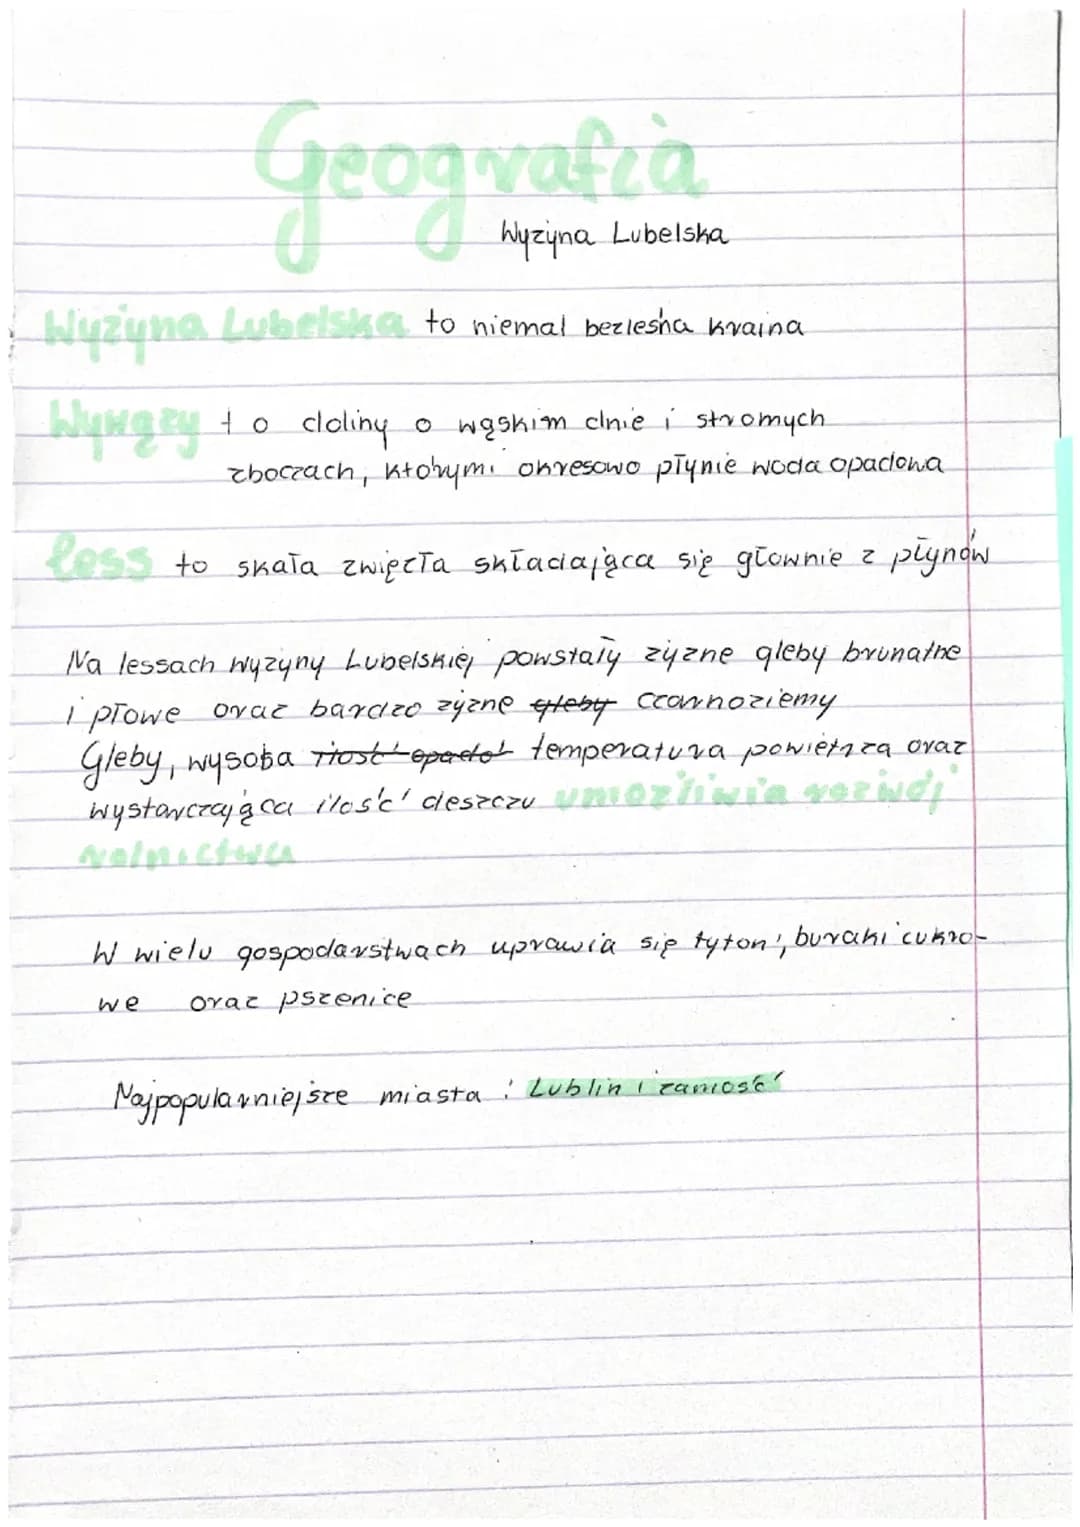 Geografia
Wyżyna Lubelska
Wyżyna Lubelska to niemal bezleśna kraina
Wąwozy to doliny o wąskim dnie i stromych
zboczach, którymi okresowo płynie woda opadowa
less to skała zwięzła składająca się głownie z płynów
Na lessach wyzyny Lubelskiej powstały żyzne gleby brunatne
i płowe oraz bardzo żyzne gleby czarnoziemy
Gleby, wysoka ilość opadó temperatura powietrza oraz
wystarczająca ilość deszczu umożliwia rozwój
rolnictwa
W wielu gospodarstwach uprawia się tytoń, buraki cukro-
we oraz pszenice
Najpopularniejsze miasta : Lublin i zamość